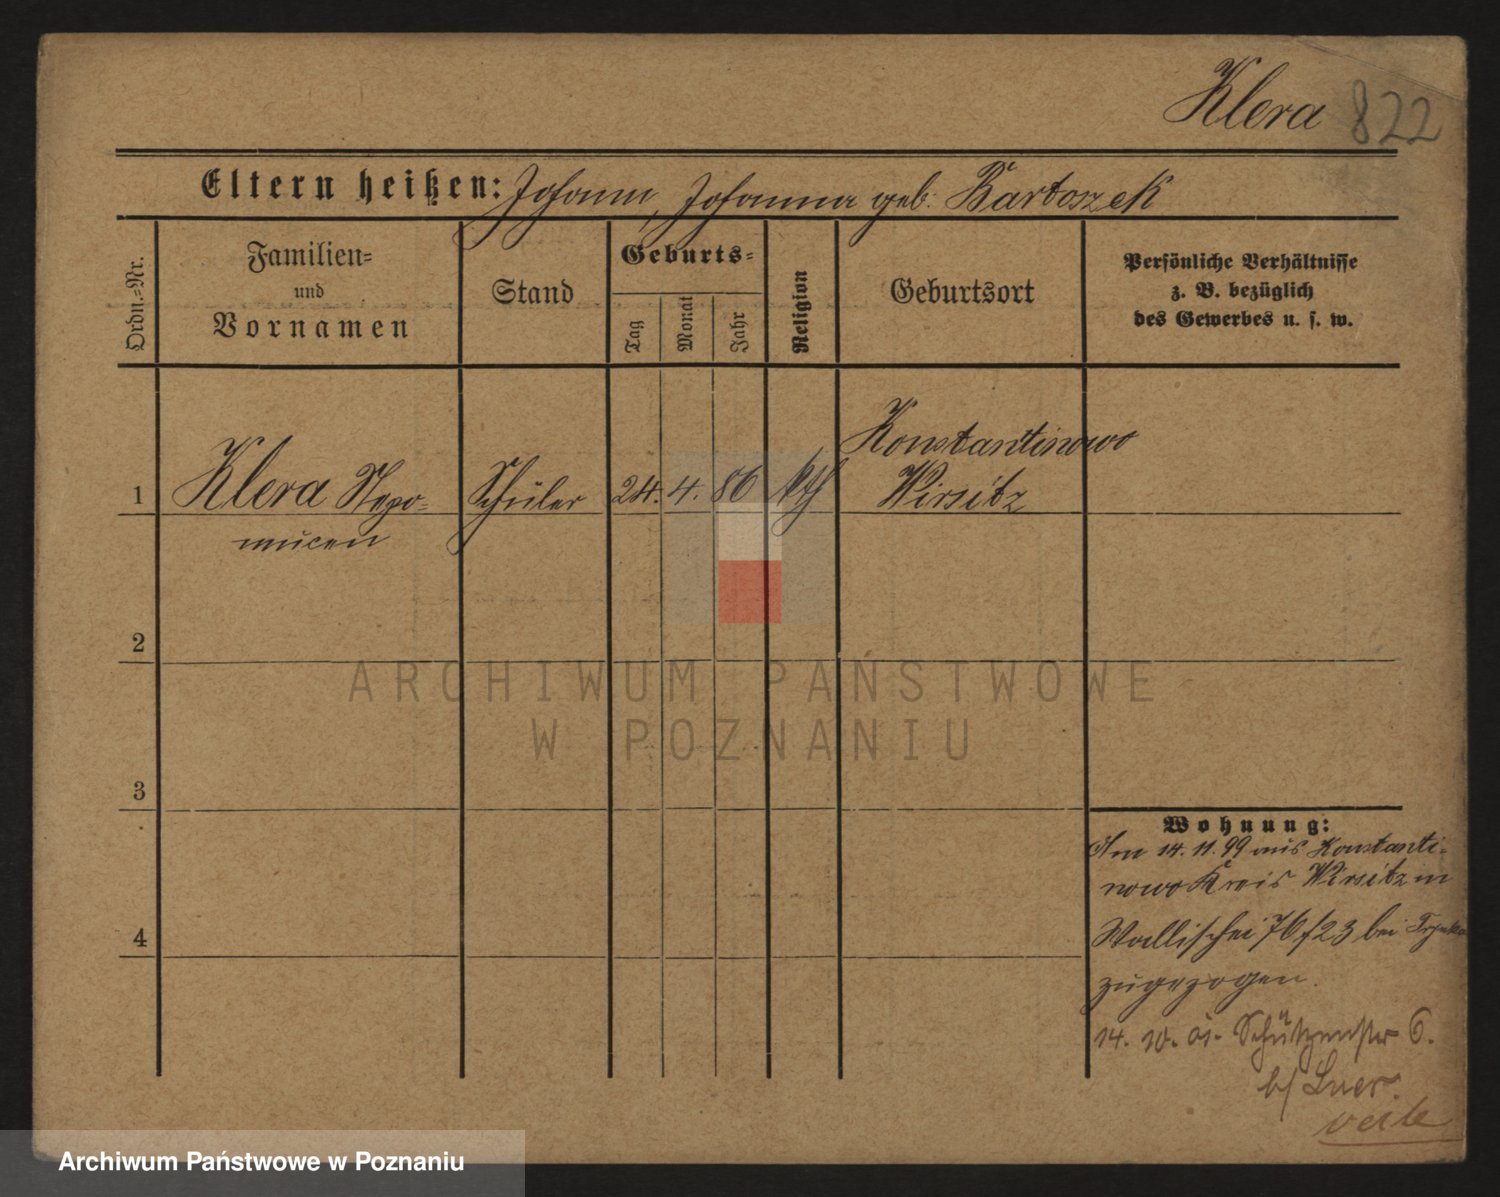 Klera 822
Eltern heißen: Johann, Johanna geb. Bartoszek
Ordn.=Nr.
Familien=
und
Vornamen
Stand
Geburts=
Tag
Monat
Jahr
Religion
Geburtsort
Persönliche Verhältnisse
z. B. bezüglich
des Gewerbes u. s. w.
Konstantinowo
1 Klera Nepo= Schüler 24. 4. 86 kth Wirsitz
mucen
2
3
4
Wohnung:
Am 14. 11. 99 aus Konstanti=
nowo Kreis Wirsitz in
Wallischei 76/23 bei
zugezogen.
14. 10. 01. Schützenstr 6.
b/
ARCHIWUM PAŃSTWOWE
W POZNANIU
Archiwum Państwowe w Poznaniu